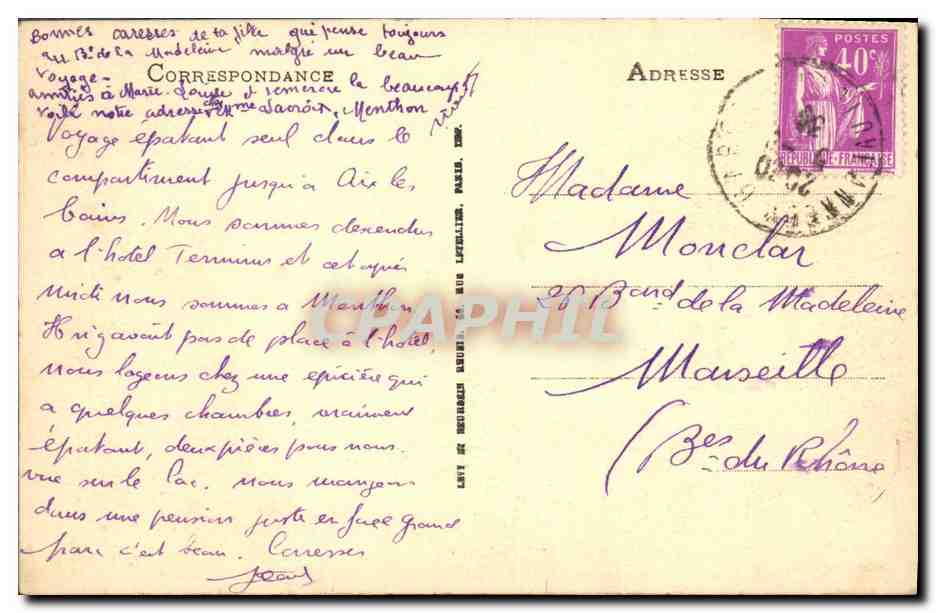 Bonnes caresses de ta fille qui pense toujours
au Bd de la Madeleine malgré un beau
voyage.
CORRESPONDANCE
amitiés à Marie Louise et remercie la beaucoup
voilà notre adresse chez Mme Menthon
Voyage épatant seul dans le
compartiment jusqu'a Aix les
bains. Nous sommes descendus
a l'hôtel Terminus et cet après
midi nous sommes a Menthon
Il n'y avait pas de place à l'hôtel,
nous logeons chez une epicière qui
a quelques chambres, vraiment
épatant, deux pièces pour nous.
vue sur le lac. nous mangeons
dans une pension juste en face grand
parc c'est beau. Caresses
Jean
LEVY ET NEURDEIN REUNIS, RUE LETELLIER, PARIS, IMP.
ADRESSE
POSTES
40c
REPUBLIQUE-FRANÇAISE
Madame
Monclar
26 Bard de la Madeleine
Marseille
(Bes du Rhône
CPAPHIL